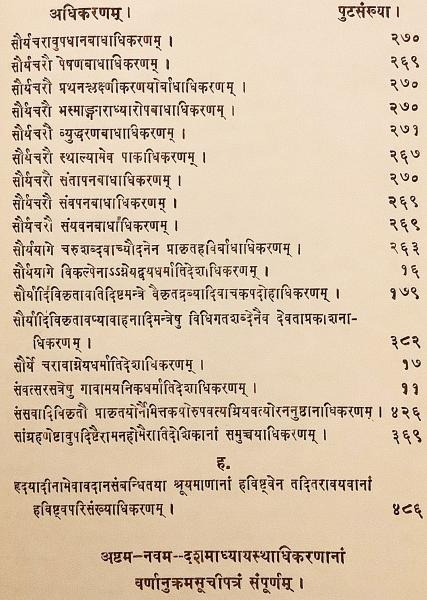 अधिकरणम् । पुटसंख्या ।
सौर्यचरावुपधानबाधाधिकरणम् । २७०
सौर्यचरौ पेषणबाधाधिकरणम् । २६९
सौर्यचरौ प्रथनश्लक्ष्णीकरणयोर्बाधाधिकरणम् । २७०
सौर्यचरौ भस्माङ्गाराध्यारोपबाधाधिकरणम् । २७०
सौर्यचरौ व्युद्धरणबाधाधिकरणम् । २७१
सौर्यचरौ स्थाल्यामेव पाकाधिकरणम् । २६७
सौर्यचरौ संतापनबाधाधिकरणम् । २७०
सौर्यचरौ संवपनबाधाधिकरणम् । २६९
सौर्यचरौ संयवनबाधाधिकरणम् । २६९
सौर्ययागे चरुशब्दवाच्यौदनेन प्राकृतहविर्बाधाधिकरणम् । २६३
सौर्ययागे विकल्पेनाऽऽग्नेयद्वयधर्मातिदेशाधिकरणम् । १६
सौर्यादिविकृतावतिदिष्टमन्त्रे वैकृतद्रव्यादिवाचकपदोहाधिकरणम् । १७९
सौर्यादिविकृतावप्यावाहनादिमन्त्रेषु विधिगतशब्देनैव देवताप्रकाशना-
धिकरणम् । ३८२
सौर्ये चरावाग्नेयधर्मातिदेशाधिकरणम् । १७
संवत्सरसत्रेषु गावामयनिकधर्मातिदेशाधिकरणम् । ११
संसवादिविकृतौ प्राकृतयोर्नैमित्तकयोरुपवत्यग्रियवत्योरननुष्ठानाधिकरणम् । ४२६
सांग्रहणेष्टावुपदिष्टैरामनहोमैरातिदेशिकानां समुच्चयाधिकरणम् । ३६९
ह.
हृदयादीनामेवावदानसंबन्धितया श्रूयमाणानां हविष्ट्वेन तदितरावयवानां
हविष्ट्वपरिसंख्याधिकरणम् । ४८६
अष्टम-नवम--दशमाध्यायस्थाधिकरणानां
वर्णानुक्रमसूचीपत्रं संपूर्णम् ।